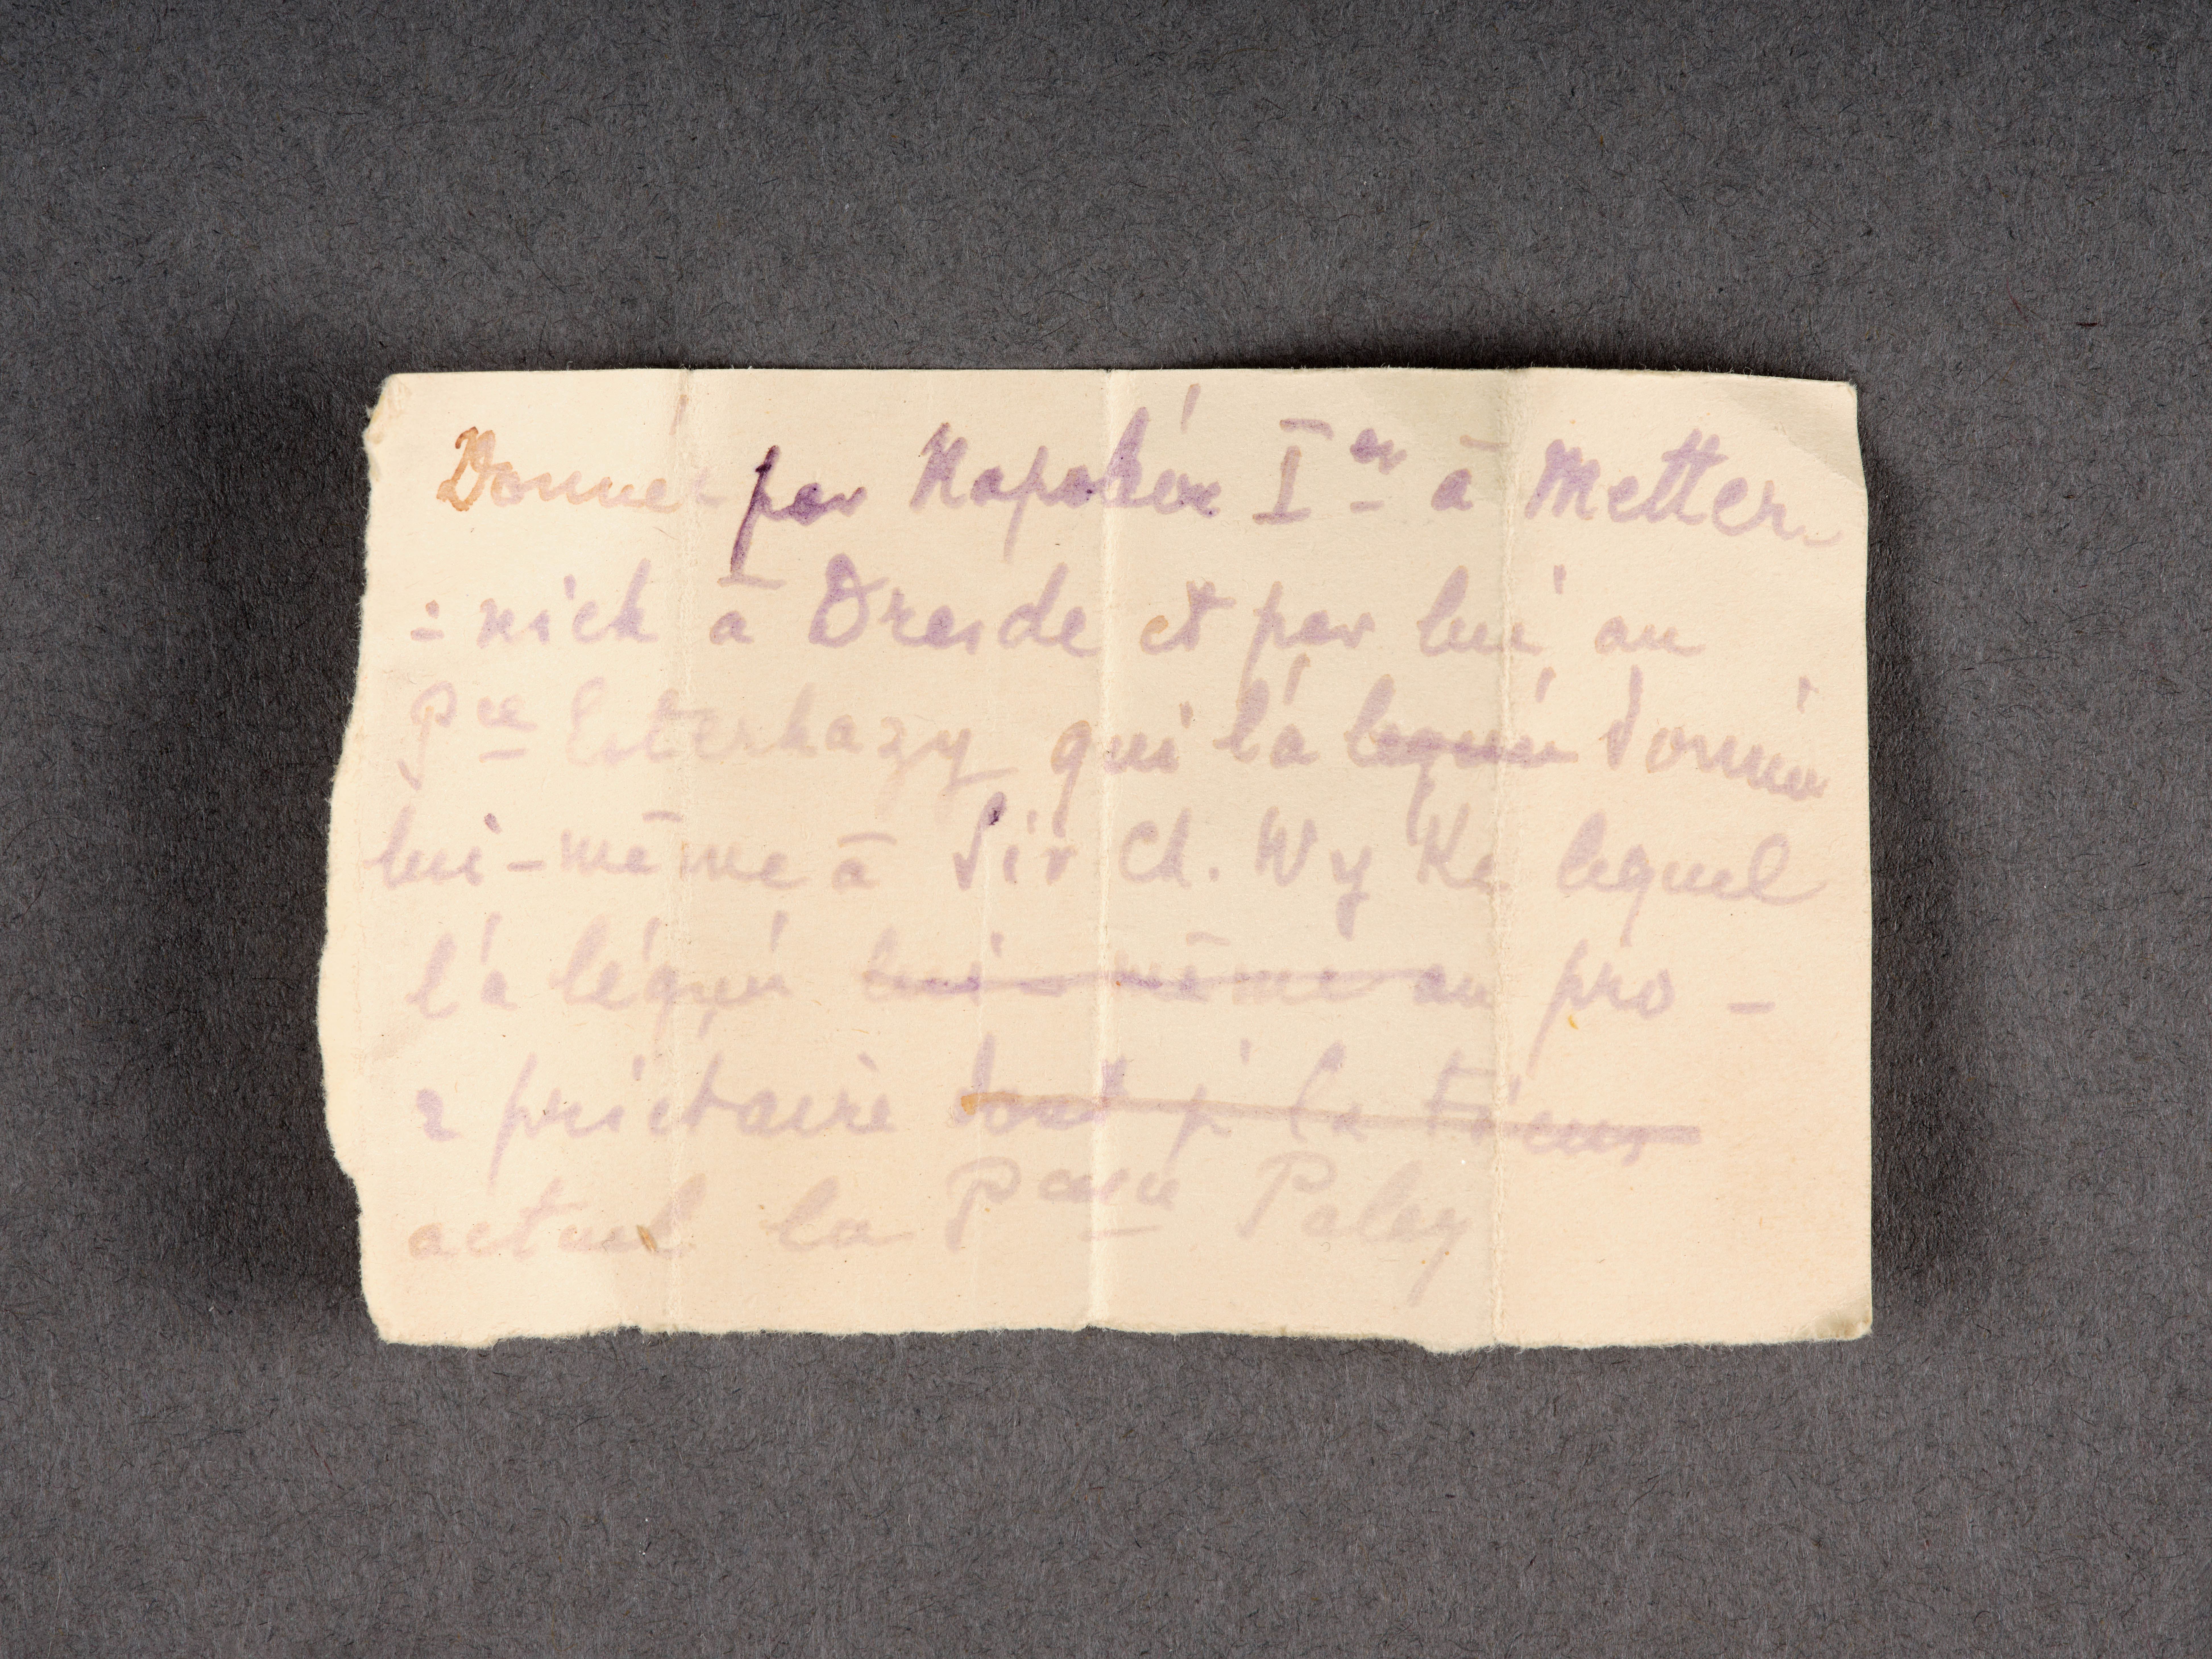 Donnée par Napoléon Ier à Metter-
=nich à Dresde et par lui au
Pce Esterhazy qui l'a légué donné
lui-même à Sir Ch. Wyke lequel
l'a légué lui-même au pro-
=priétaire dont je la tiens
actuel la Pcesse Paley